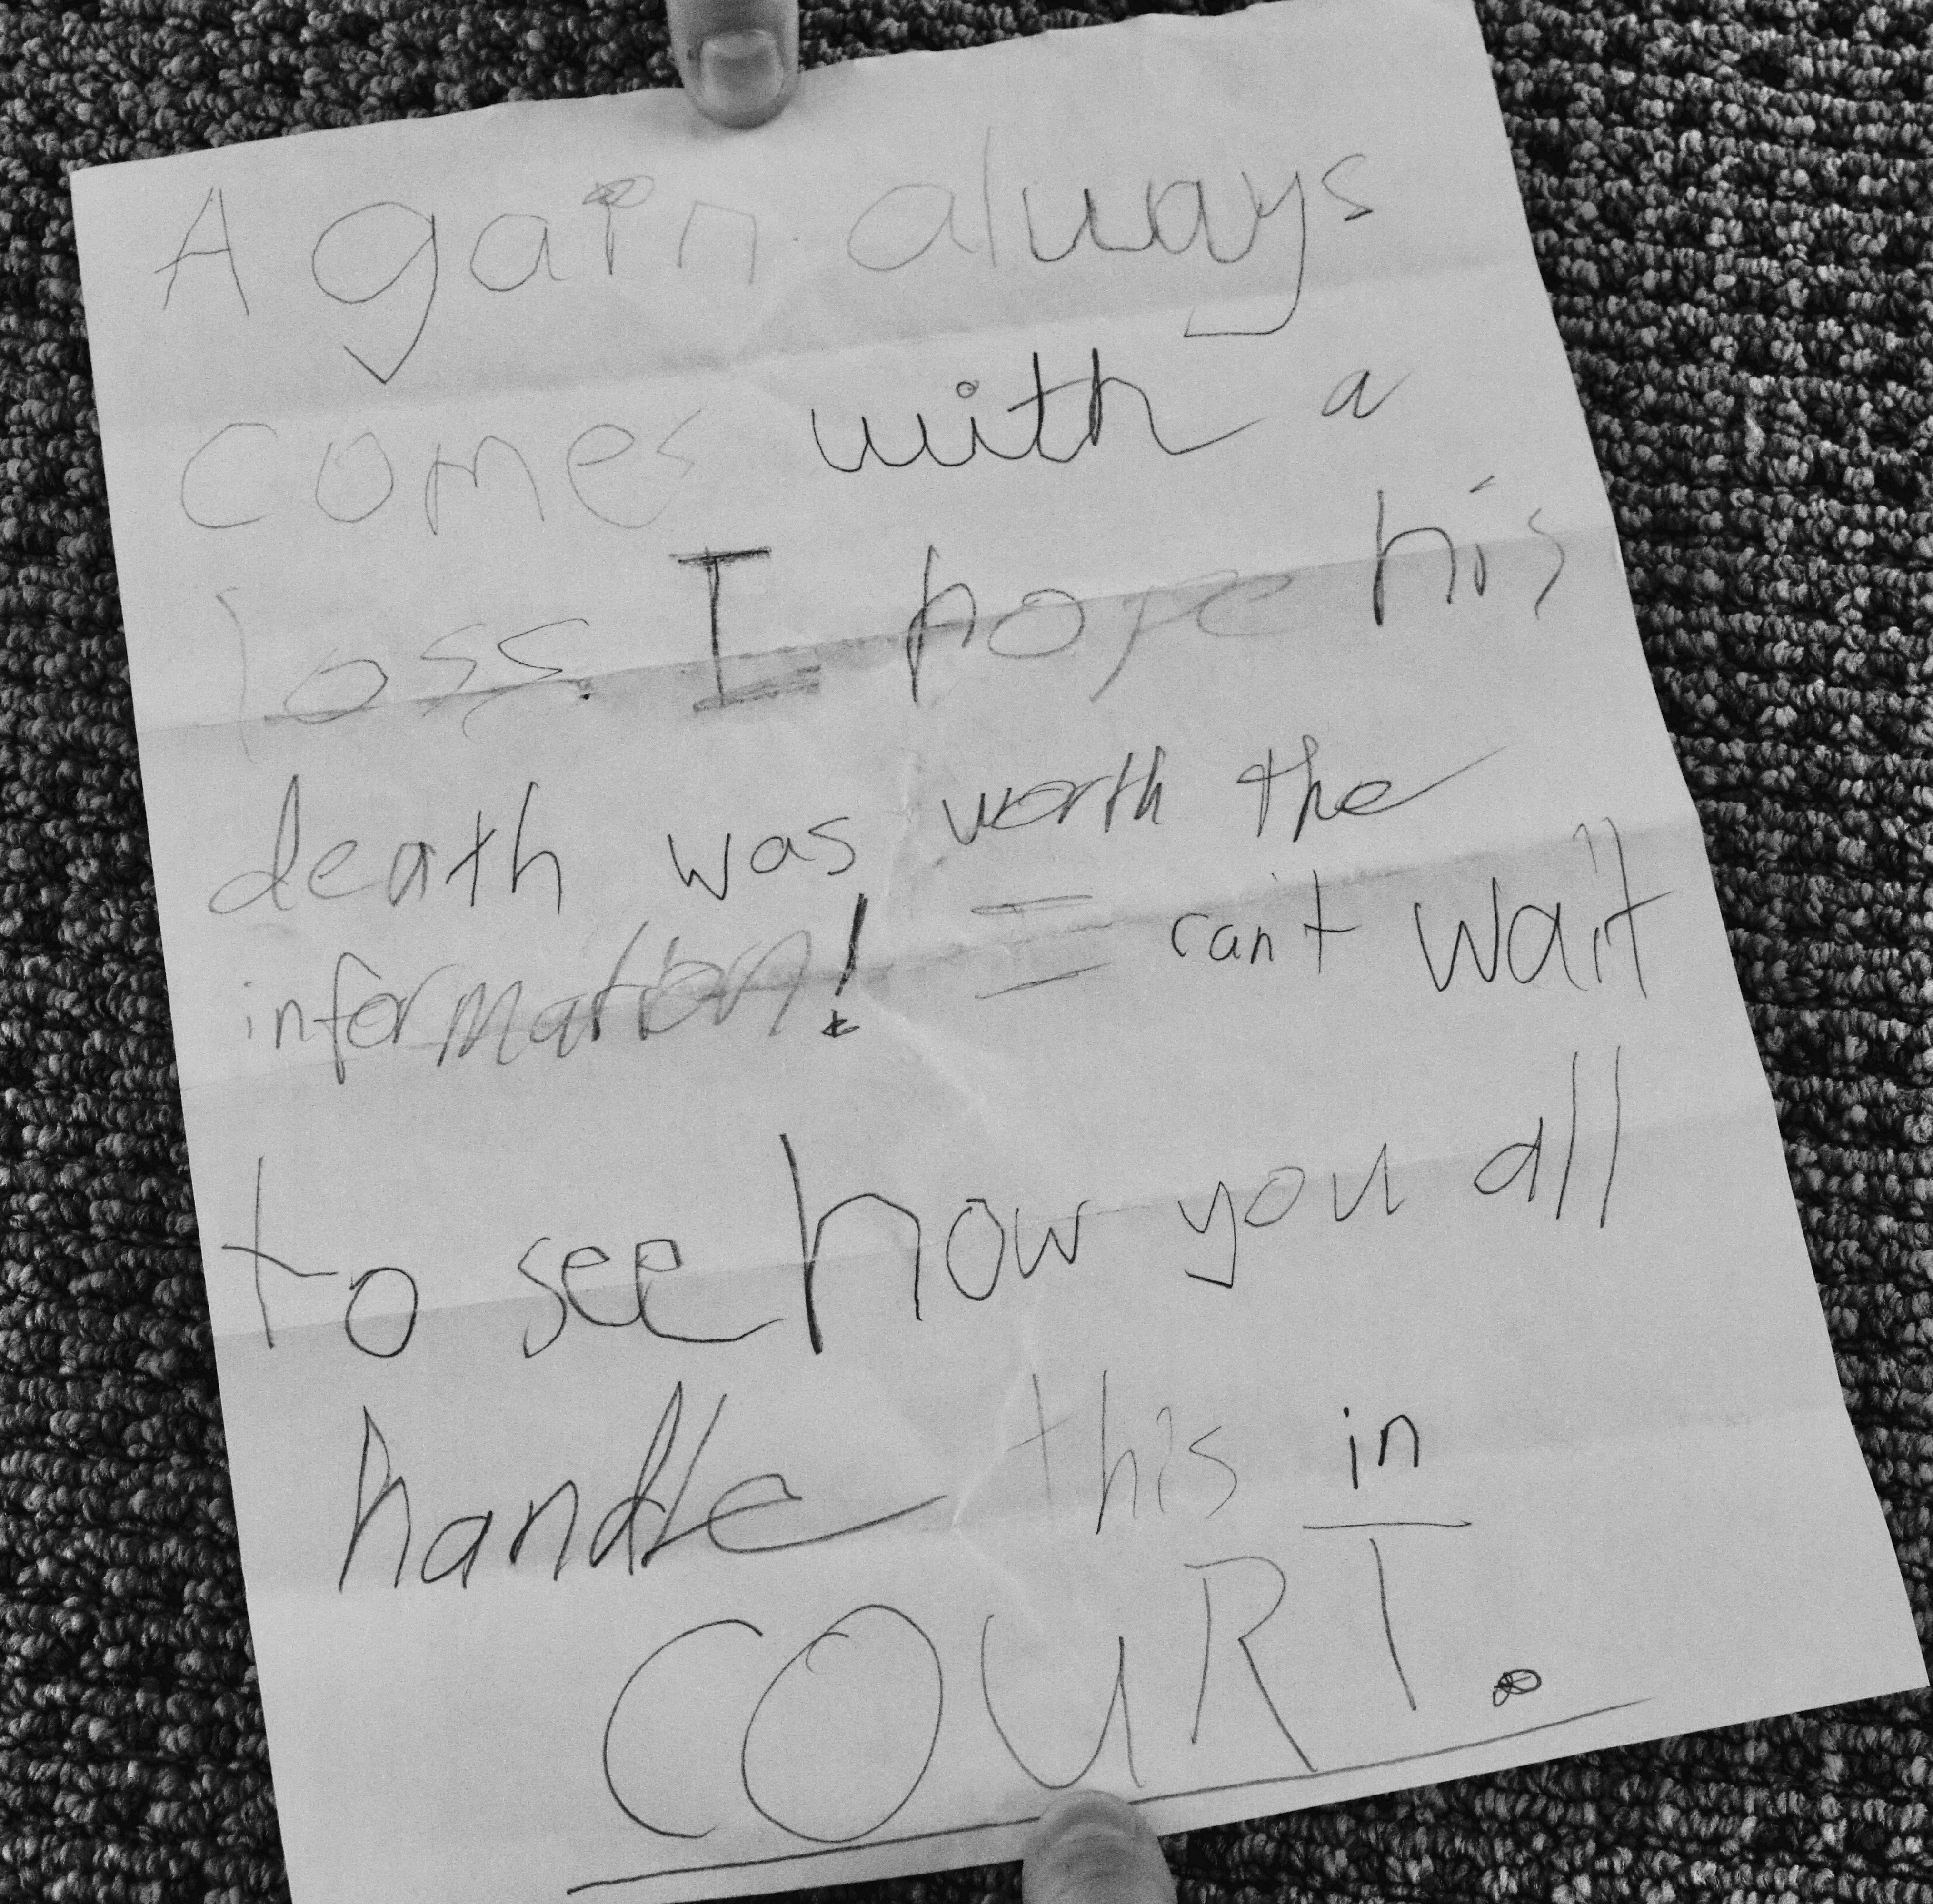 A gain always
comes with a
loss. I hope his
death was worth the
information! I can't wait
to see how you all
handle this in
COURT.